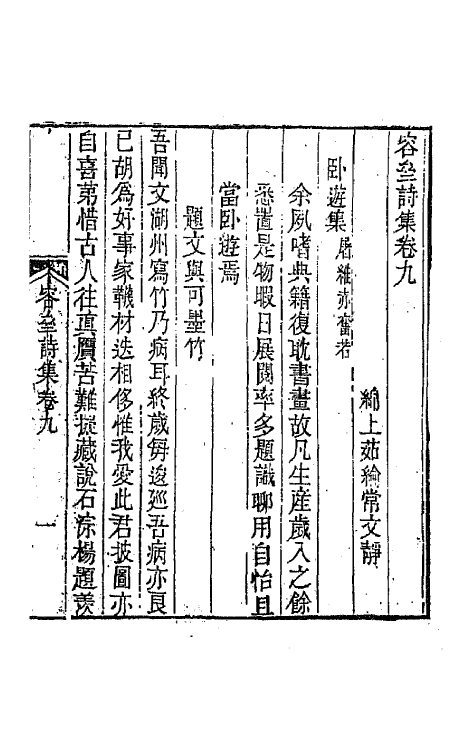 容垒詩集卷九
綿上茹綸常文靜
卧遊集 屠維赤奮若
余夙嗜典籍復耽書畫故凡生産歲入之餘
悉置是物暇日展閱率多題識聊用自怡且
當卧遊焉
題文與可墨竹
吾聞文湖州寫竹乃病耳終歲每逡廵吾病亦良
已胡為好事家韈材迭相侈惟我愛此君披圖亦
自喜苐惜古人往真贋苦難擬藏說石淙楊題羨
容垒詩集卷九
一